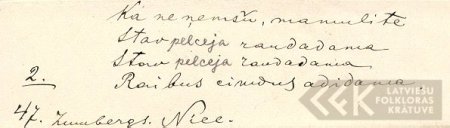 Ka neņemšu, mamulīte
Stāv peļceja raudadama
Stāv peļceja raudadama
2. Raibus cimdus adidama.
47. Zumbergs. Nice.
LATVIEŠU
LFK FOLKLORAS
KRĀTUVE